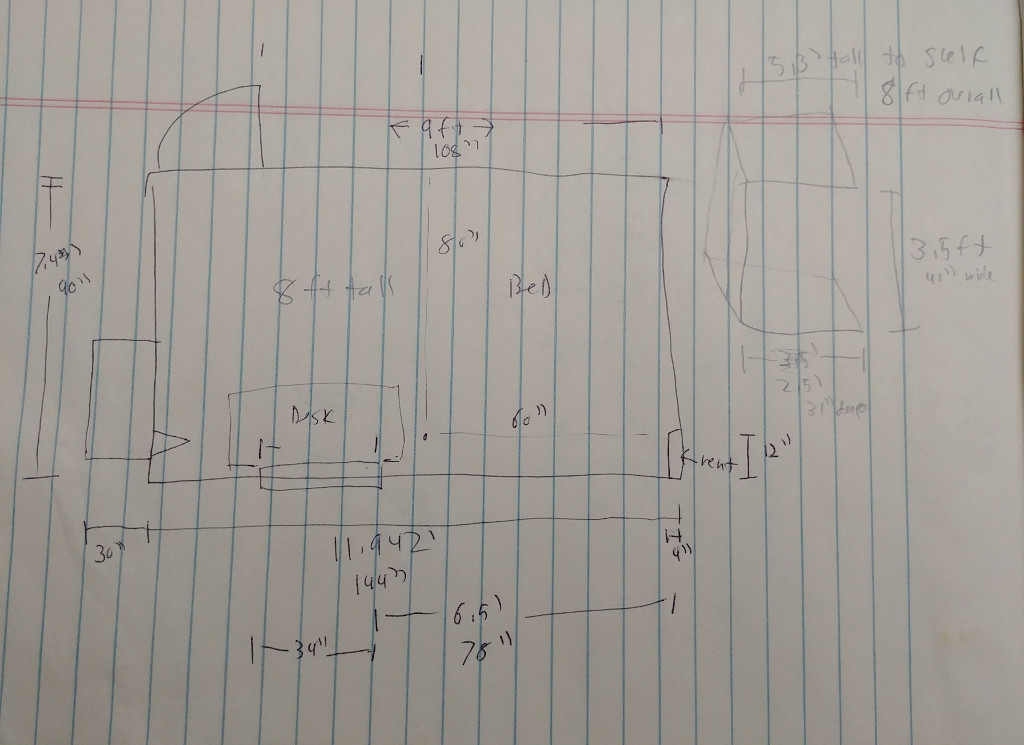 5.3' tall to shelf
8 ft overall
9 ft
108"
80"
7.493'
90"
8 ft tall
BeD
3.5 ft
41" wide
Desk
60"
vent
12"
2.5'
31" deep
30"
11.942'
144"
4"
6.5'
78"
34"